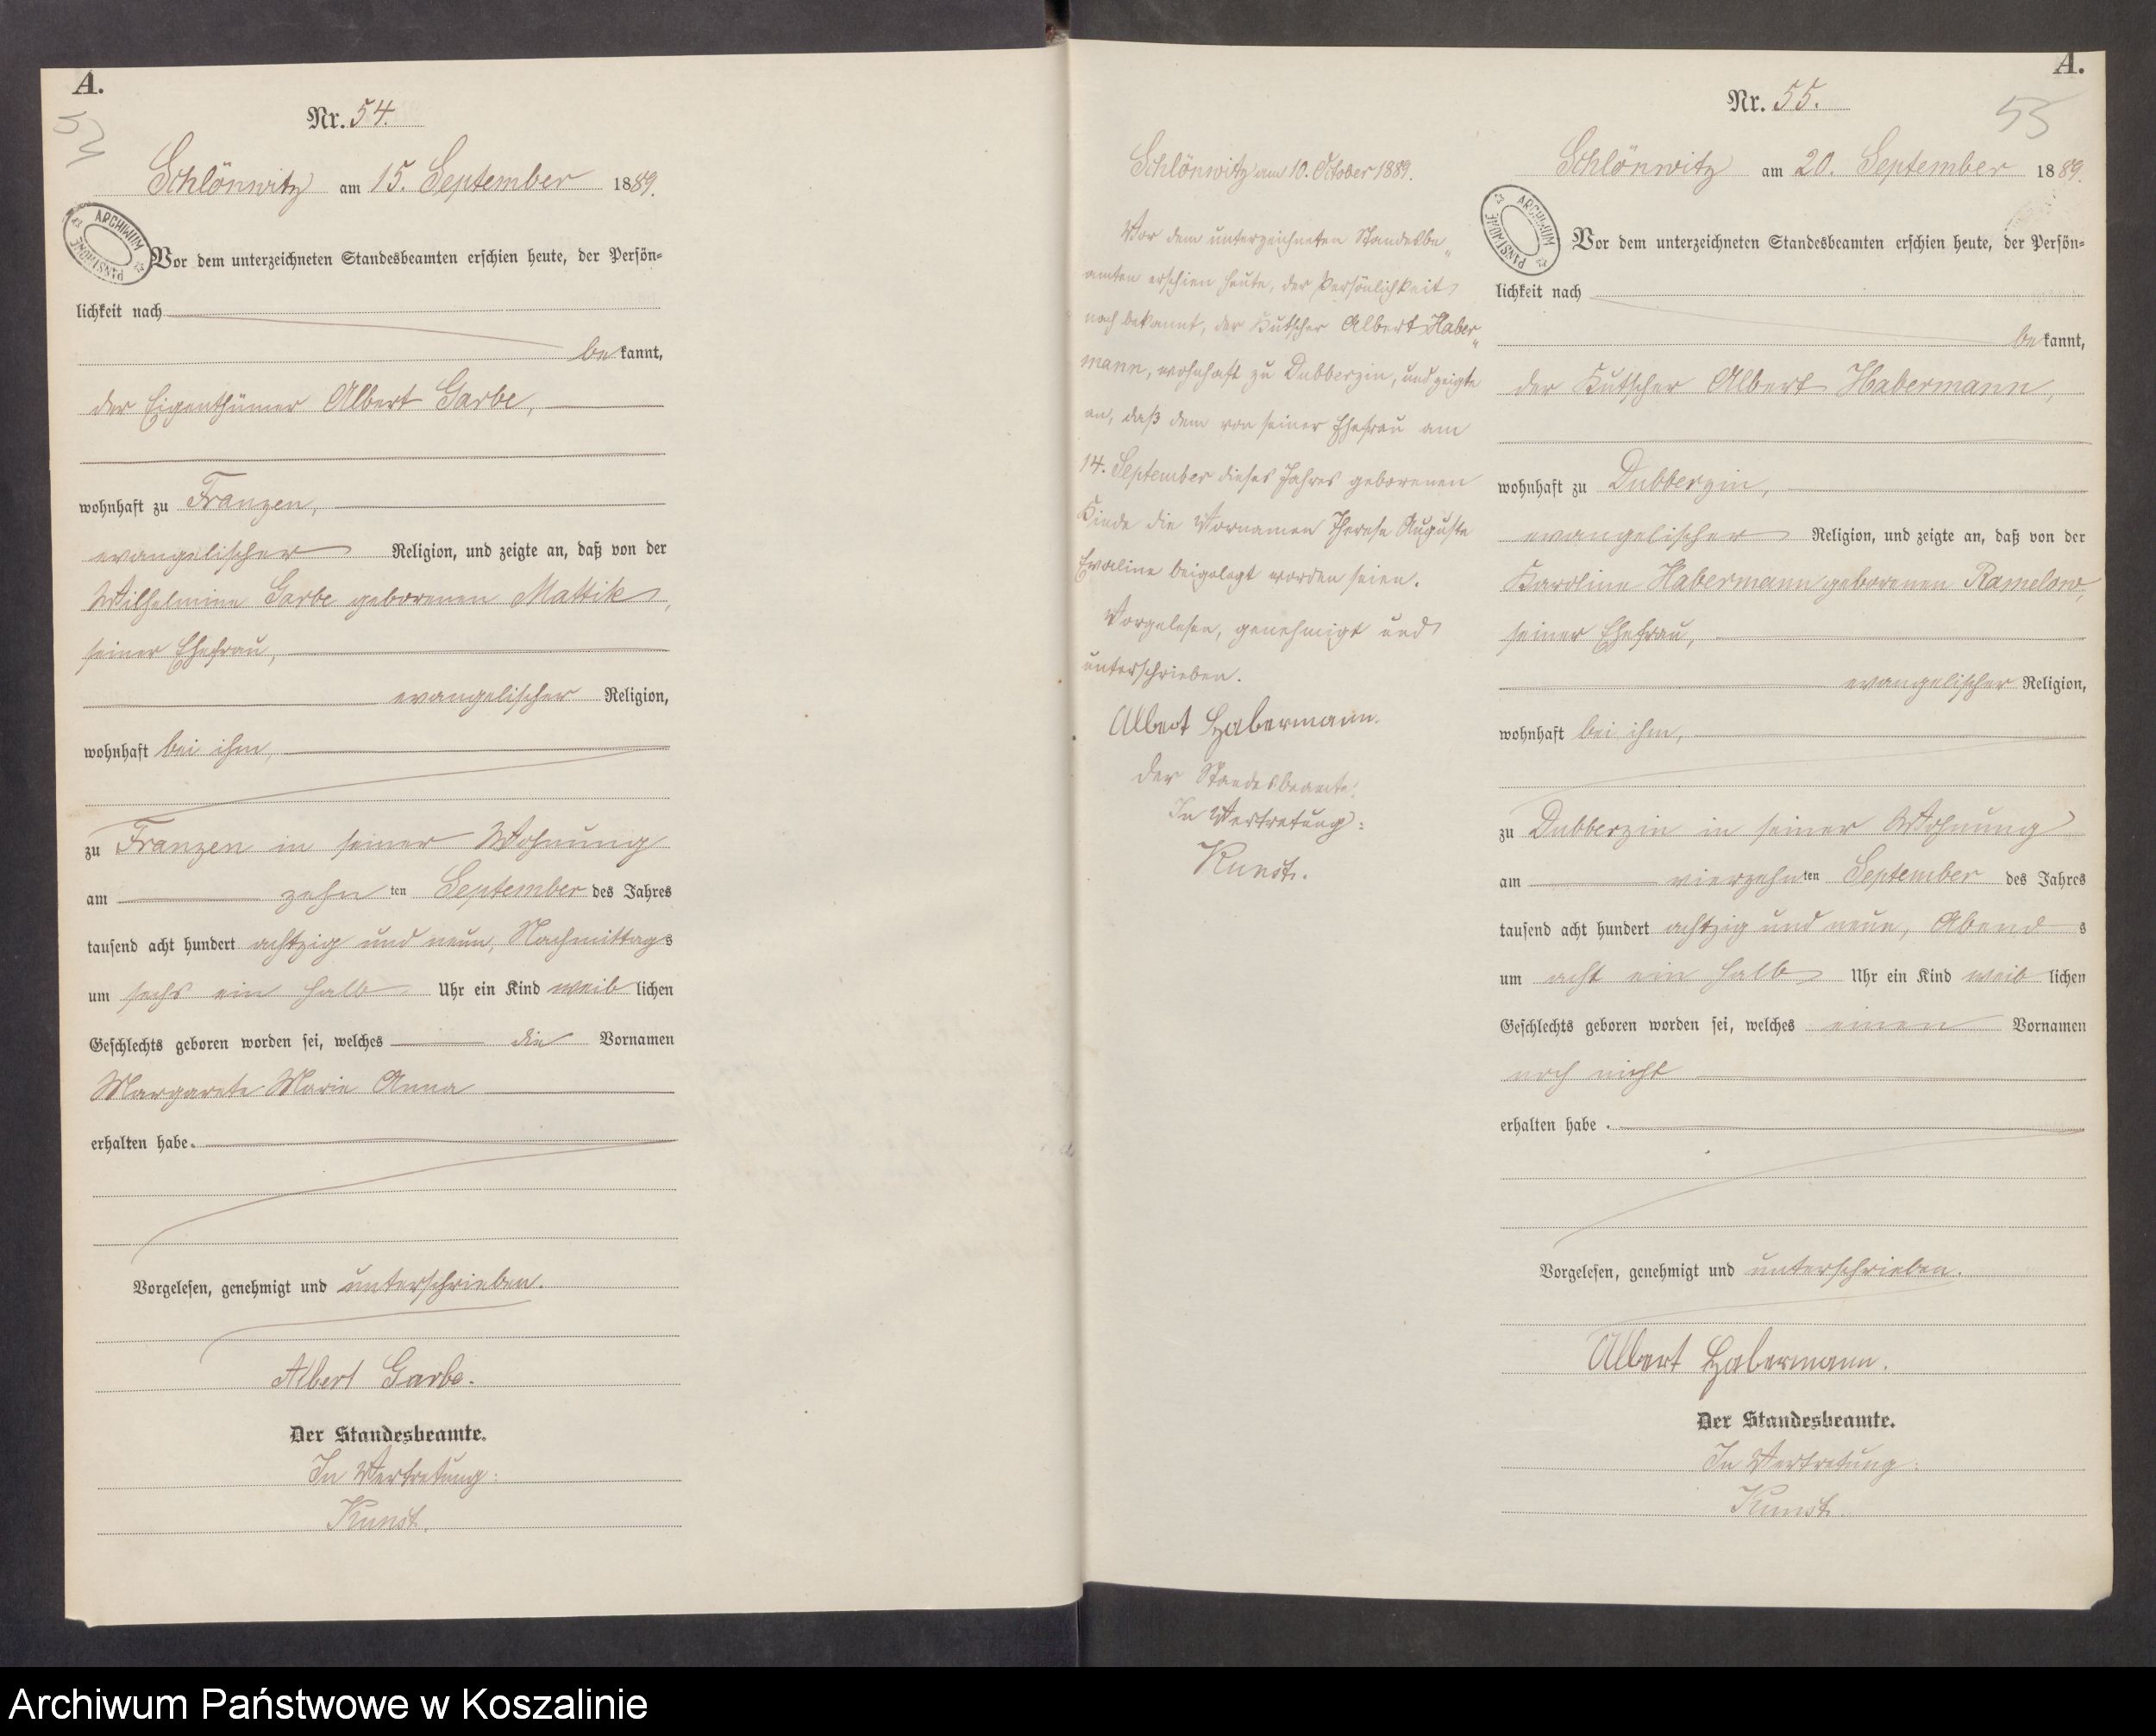 A.
54
Nr. 54.
Schlönwitz am 15. September 1889.
ARCHIWUM PAŃSTWOWE
Vor dem unterzeichneten Standesbeamten erschien heute, der Persön-
lichkeit nach
bekannt,
der Eigenthümer Albert Garbe,
wohnhaft zu Franzen,
evangelischer Religion, und zeigte an, daß von der
Wilhelmine Garbe geborenen Mattik,
seiner Ehefrau,
evangelischer Religion,
wohnhaft bei ihm,
zu Franzen in seiner Wohnung
am zehnten September des Jahres
tausend acht hundert achtzig und neun, Nachmittags
um sechs ein halb Uhr ein Kind weiblichen
Geschlechts geboren worden sei, welches die Vornamen
Margarete Marie Anna
erhalten habe.
Vorgelesen, genehmigt und unterschrieben.
Albert Garbe.
Der Standesbeamte.
In Vertretung:
Kunst.
Schlönwitz am 10. October 1889.
Vor dem unterzeichneten Standesbe„
amten erschien heute, der Persönlichkeit
nach bekannt, der Kutscher Albert Haber„
mann, wohnhaft zu Dubberzin, und zeigte
an, daß dem von seiner Ehefrau am
14. September dieses Jahres geborenen
Kinde die Vornamen Therese Auguste
Evaline beigelegt worden seien.
Vorgelesen, genehmigt und
unterschrieben.
Albert Habermann.
Der Standesbeamte.
In Vertretung:
Kunst.
A.
Nr. 55.
55
Schlönwitz am 20. September 1889.
ARCHIWUM PAŃSTWOWE
Vor dem unterzeichneten Standesbeamten erschien heute, der Persön-
lichkeit nach
bekannt,
der Kutscher Albert Habermann,
wohnhaft zu Dubberzin,
evangelischer Religion, und zeigte an, daß von der
Karoline Habermann geborenen Ramelow,
seiner Ehefrau,
evangelischer Religion,
wohnhaft bei ihm,
zu Dubberzin in seiner Wohnung
am vierzehnten September des Jahres
tausend acht hundert achtzig und neun, Abends
um acht ein halb Uhr ein Kind weiblichen
Geschlechts geboren worden sei, welches einen Vornamen
noch nicht
erhalten habe.
Vorgelesen, genehmigt und unterschrieben.
Albert Habermann.
Der Standesbeamte.
In Vertretung:
Kunst.
Archiwum Państwowe w Koszalinie